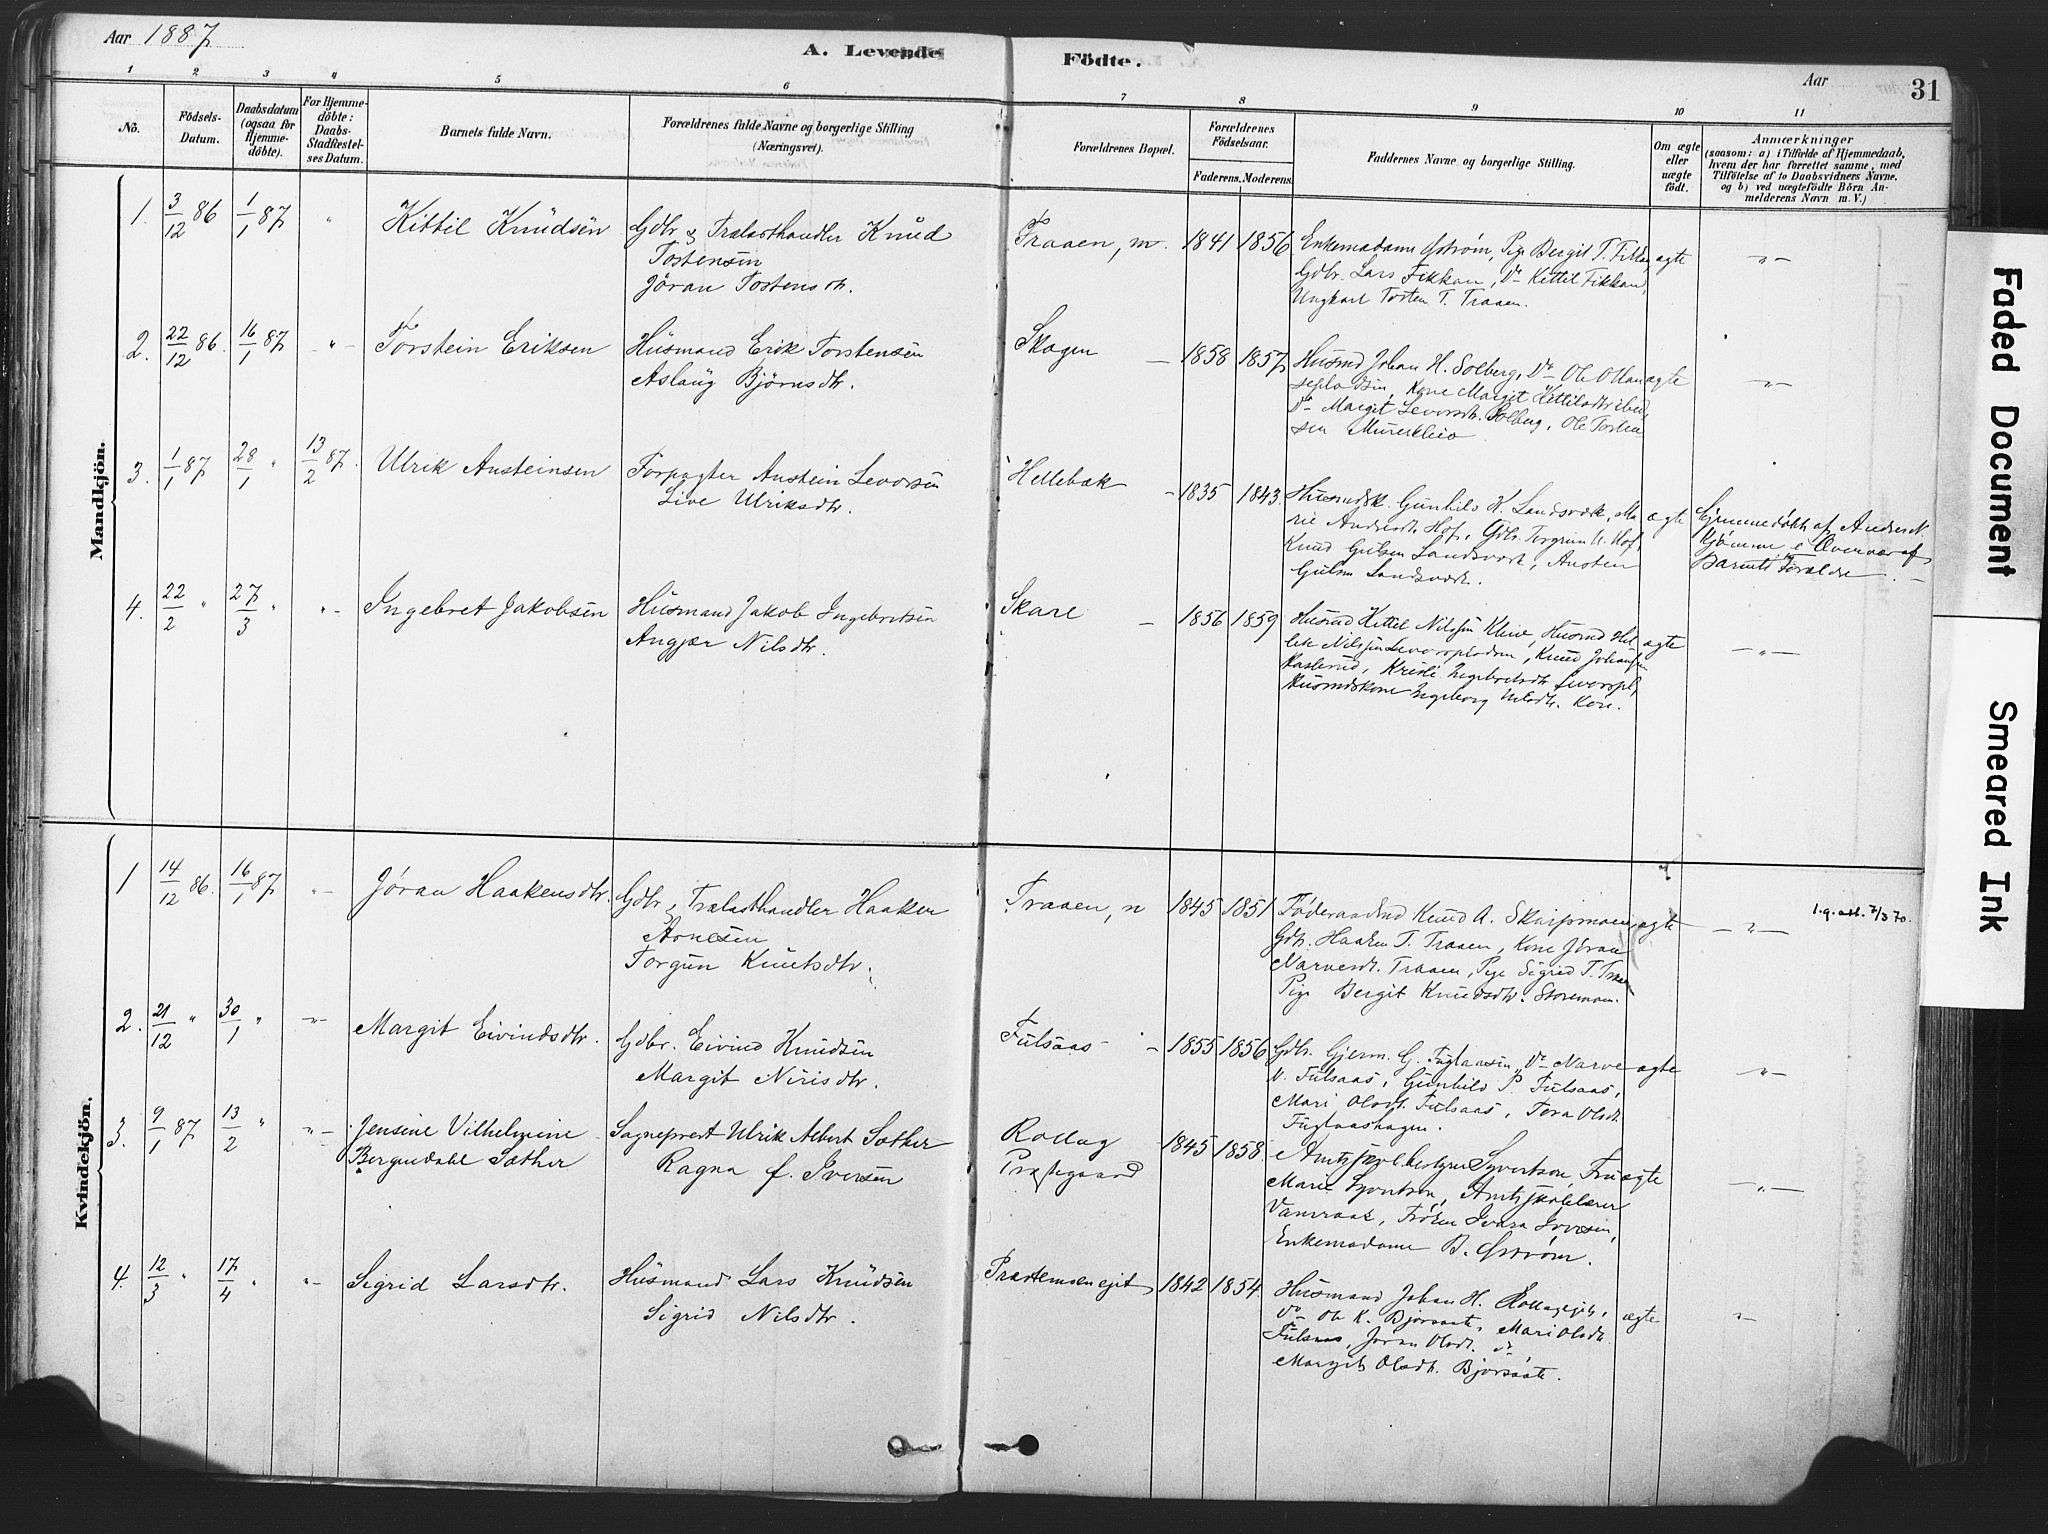 Aar 1887
A. Levende Födte.
Aar
31
1 2 3 4 5 6 7 8 9 10 11
No.
Födsels-
Datum.
Daabsdatum
(ogsaa for
Hjemme-
döbte).
For Hjemme-
döbte:
Daabs-
Stadfæstel-
ses Datum.
Barnets fulde Navn.
Forældrenes fulde Navne og borgerlige Stilling
(Næringsvei).
Forældrenes Bopæl.
Forældrenes
Födselsaar.
Faderens. Moderens.
Faddernes Navne og borgerlige Stilling.
Om ægte
eller
uægte
födt.
Anmærkninger
(saasom: a) i Tilfælde af Hjemmedaab,
hvem der har forrettet samme, med
Tilföielse af to Daabsvidners Navne.
og b) ved uægtefödte Börn An-
melderens Navn m. V.)
Mandkjön.
1. 3/12 86 1/1 87 "
Kittil Knudsen
Gdbr & Trælasthandler Knud
Tostensen
Jöran Tostensdtr.
Traaen, m. 1841 1856
Enkemadame Østrøm, Pige Bergit T. Fikkan
Gdbr. Lars Fikkan, Do Kittil Fikkan,
Ungkarl Tosten T. Traaen.
ægte -"-
2. 22/12 86. 16/1 87 -"-
Torstein Eriksen
Husmand Erik Torstensen
Aslaug Björnsdtr.
Skogen - 1858 1857
Husmd Johan H. Solberg, Do Ole
Kone Margit Kittilsdtr ibid,
Do Margit Leversdt. Solberg, Ole Tosten
sen
ægte -"-
3. 1/1 87 28/1 " 13/2 87.
Ulrik Austeinsen
Forpagter Austein Levorsen
Live Ulriksdtr.
Hellebæk - 1835 1843.
Husmdsk. Gunhild K. Landsværk, Ma
rie Andersdt. Hof, Gdbr. Torgrim N. Hof,
Knud Gulsen Landsværk, Austen
Gulsen Landsværk.
ægte
Hjemmedöbt af Anders N
Kjömme i Overvær af
Barnets Forældre. -
4. 22/2 " 27/3 " "-
Ingebret Jakobsen
Husmand Jakob Ingebretsen
Angjær Nilsdtr.
Skare - 1856 1859
Husmd Kittil Nilssen Kleiv, Husmd Hel
lek Nilssen, Knud Johansen
Haslerud, Kristi Ingebretsdtr
Husmdskone Ingeborg Nilsdtr.
ægte -"-
Kvindekjön.
1 14/12 86. 16/1 87 "-
Jöran Haakensdtr.
Gdbr & Trælasthandler Haaken
Arnesen
Torgun Knutsdtr.
Traaen, n 1845 1851
Föderaadsmd Knud A. Skarpmoen,
Gdbr. Haaken T. Traaen, Kone Jöran
Narvesdt. Traaen, Pige Sigrid T. Traaen
Pige Bergit Knudsdtr. Storemoen.
ægte -"- 1.g.att. 7/3 70.
2. 21/12 " 30/1 " -"-
Margit Eivindsdtr.
Gdbr. Eivind Knudsen
Margit Nirisdtr.
Fulsaas - 1855 1856
Gdbr. Gjerm. G. Fuglaasen, Do Narve
N. Fulsaas, Gunhild P. Fulsaas,
Mari Olsdt. Fulsaas, Tora Olsdt.
Fuglaashagen.
ægte -"-
3. 9/1 87 13/2 " -"-
Jensine Vilhelmine
Bergendahl Sæther
Sogneprest Ulrik Albert Sæther
Ragna f. Iversen
Rollag
Præstegaard 1845 1858.
Amtsskolebestyrer Syvertsen, Fru
Marie Syvertsen, Amtsskolelærer
Vamraak, Fröken Ivara Iversen,
Enkemadame B. Østrøm.
ægte -"-
4. 12/3 " 17/4 " "-
Sigrid Larsdtr.
Husmand Lars Knudsen
Sigrid Nilsdtr.
Præstemoen 1842 1854.
Husmand Johan H.
Do Ole K. Björsaate, Mari Olsdt.
Fulsaas, Jöran Olsdt. &
Margit Olsdt. Björsaate.
ægte "-
Faded Document
Smeared Ink